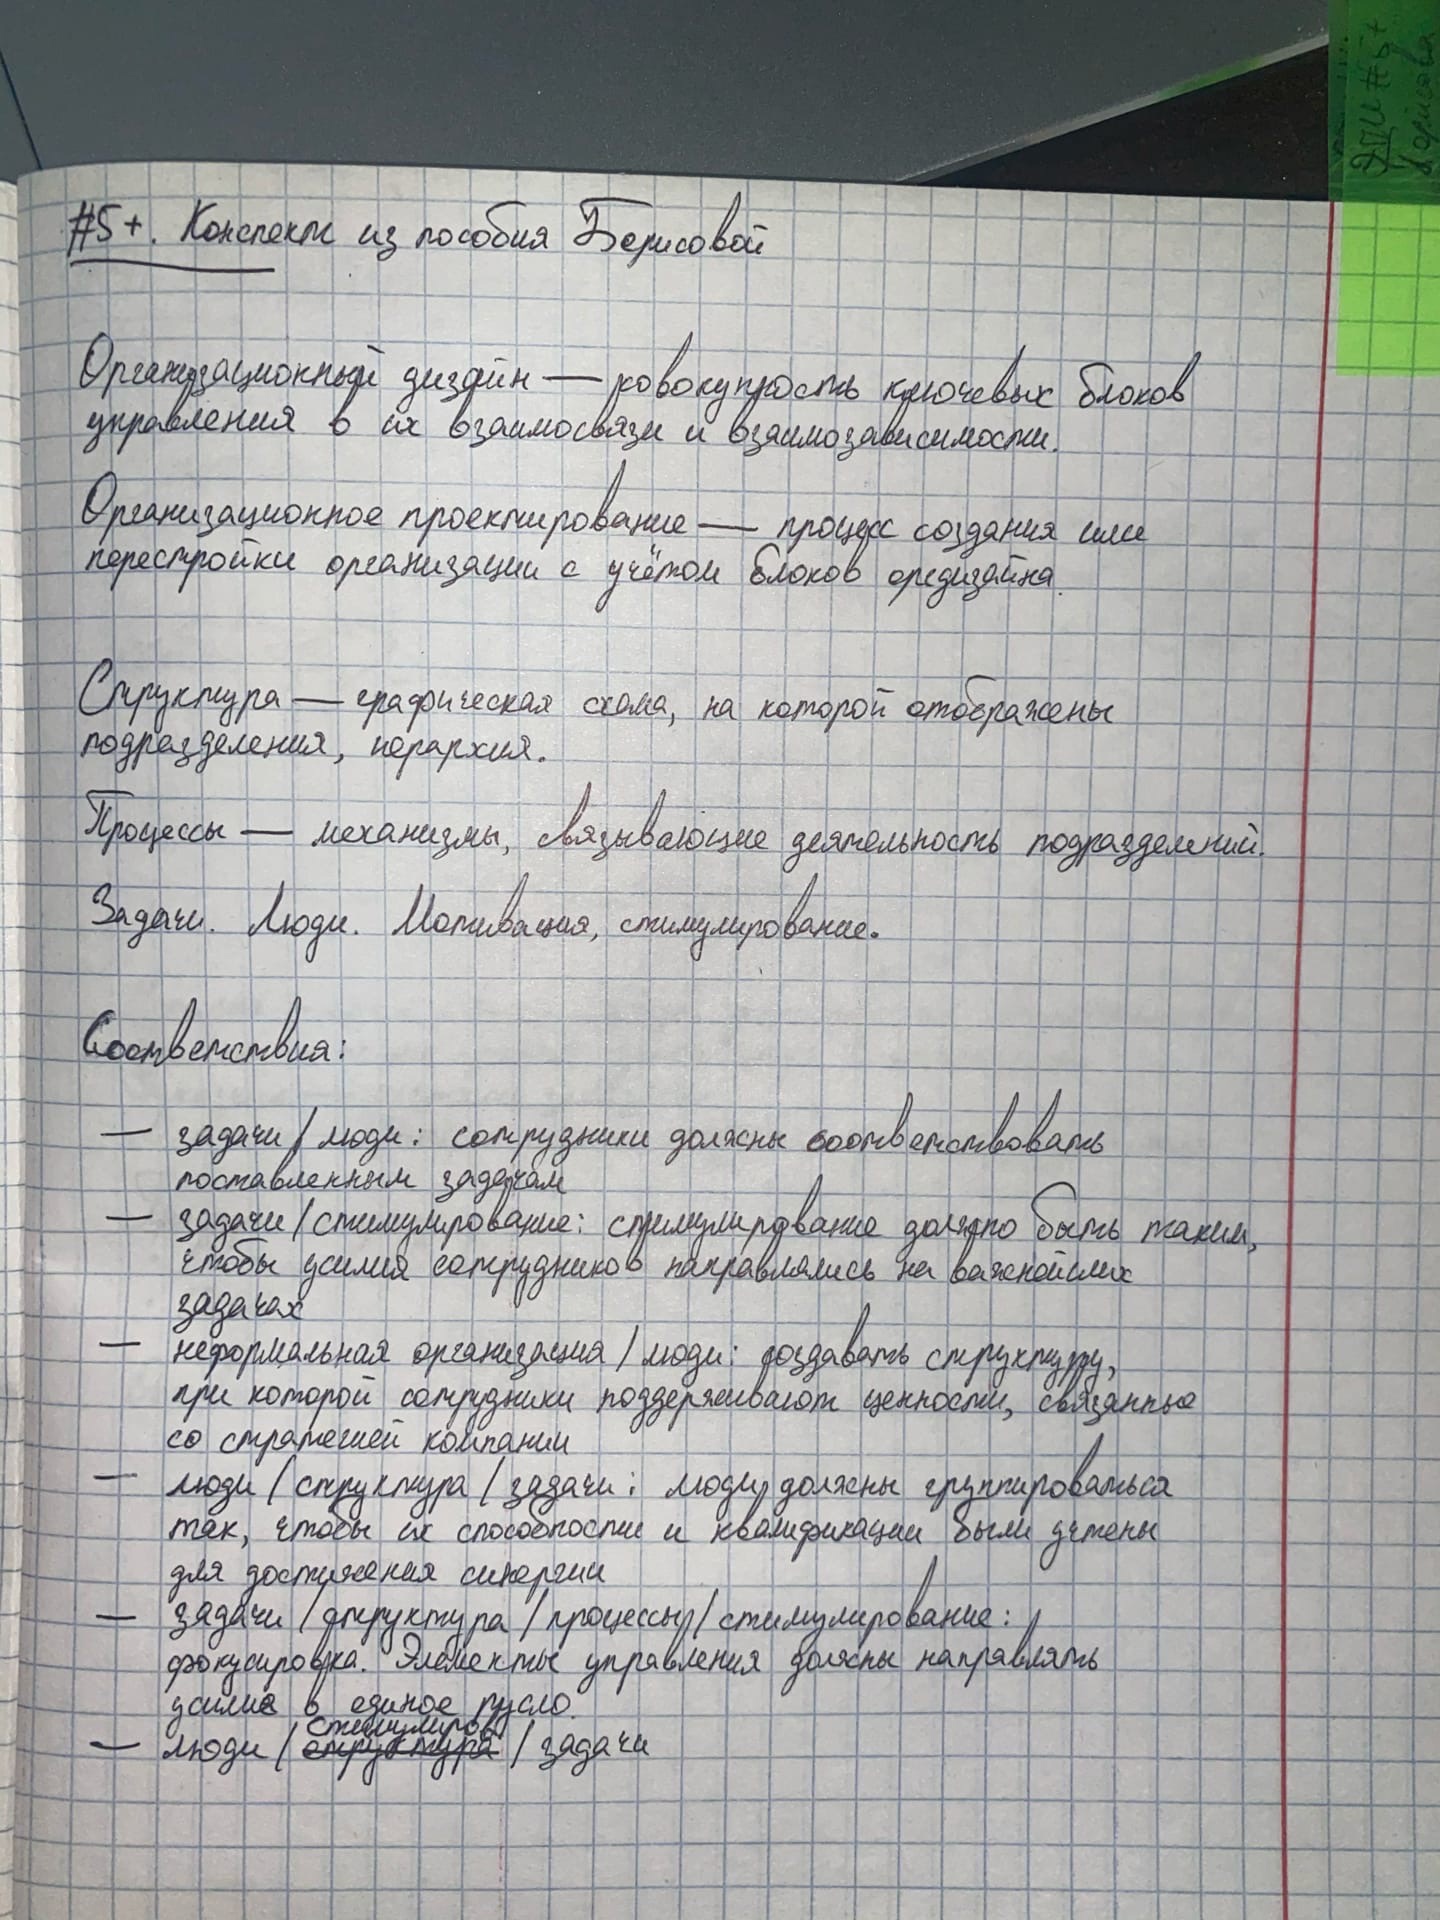 #5+. Конспект из пособия Борисовой
Организационный дизайн — совокупность ключевых блоков
управления в их взаимосвязи и взаимозависимости.
Организационное проектирование — процесс создания или
перестройки организации с учётом блоков оргдизайна.
Структура — графическая схема, на которой отображены
подразделения, иерархия.
Процессы — механизмы, связывающие деятельность подразделений.
Задачи. Люди. Мотивация, стимулирование.
Соответствия:
— задачи / люди: сотрудники должны соответствовать
поставленным задачам
— задачи / стимулирование: стимулирование должно быть таким,
чтобы усилия сотрудников направлялись на важнейших
задачах
— неформальная организация / люди: создавать структуру,
при которой сотрудники поддерживают ценности, связанные
со стратегией компании
— люди / структура / задачи: люди должны группироваться
так, чтобы их способности и квалификации были учтены
для достижения синергии
— задачи / структура / процессы / стимулирование:
фокусировка. Элементы управления должны направлять
усилия в единое русло.
стимулиров
— люди / структура / задачи
ЭПИ #5+
Борисова